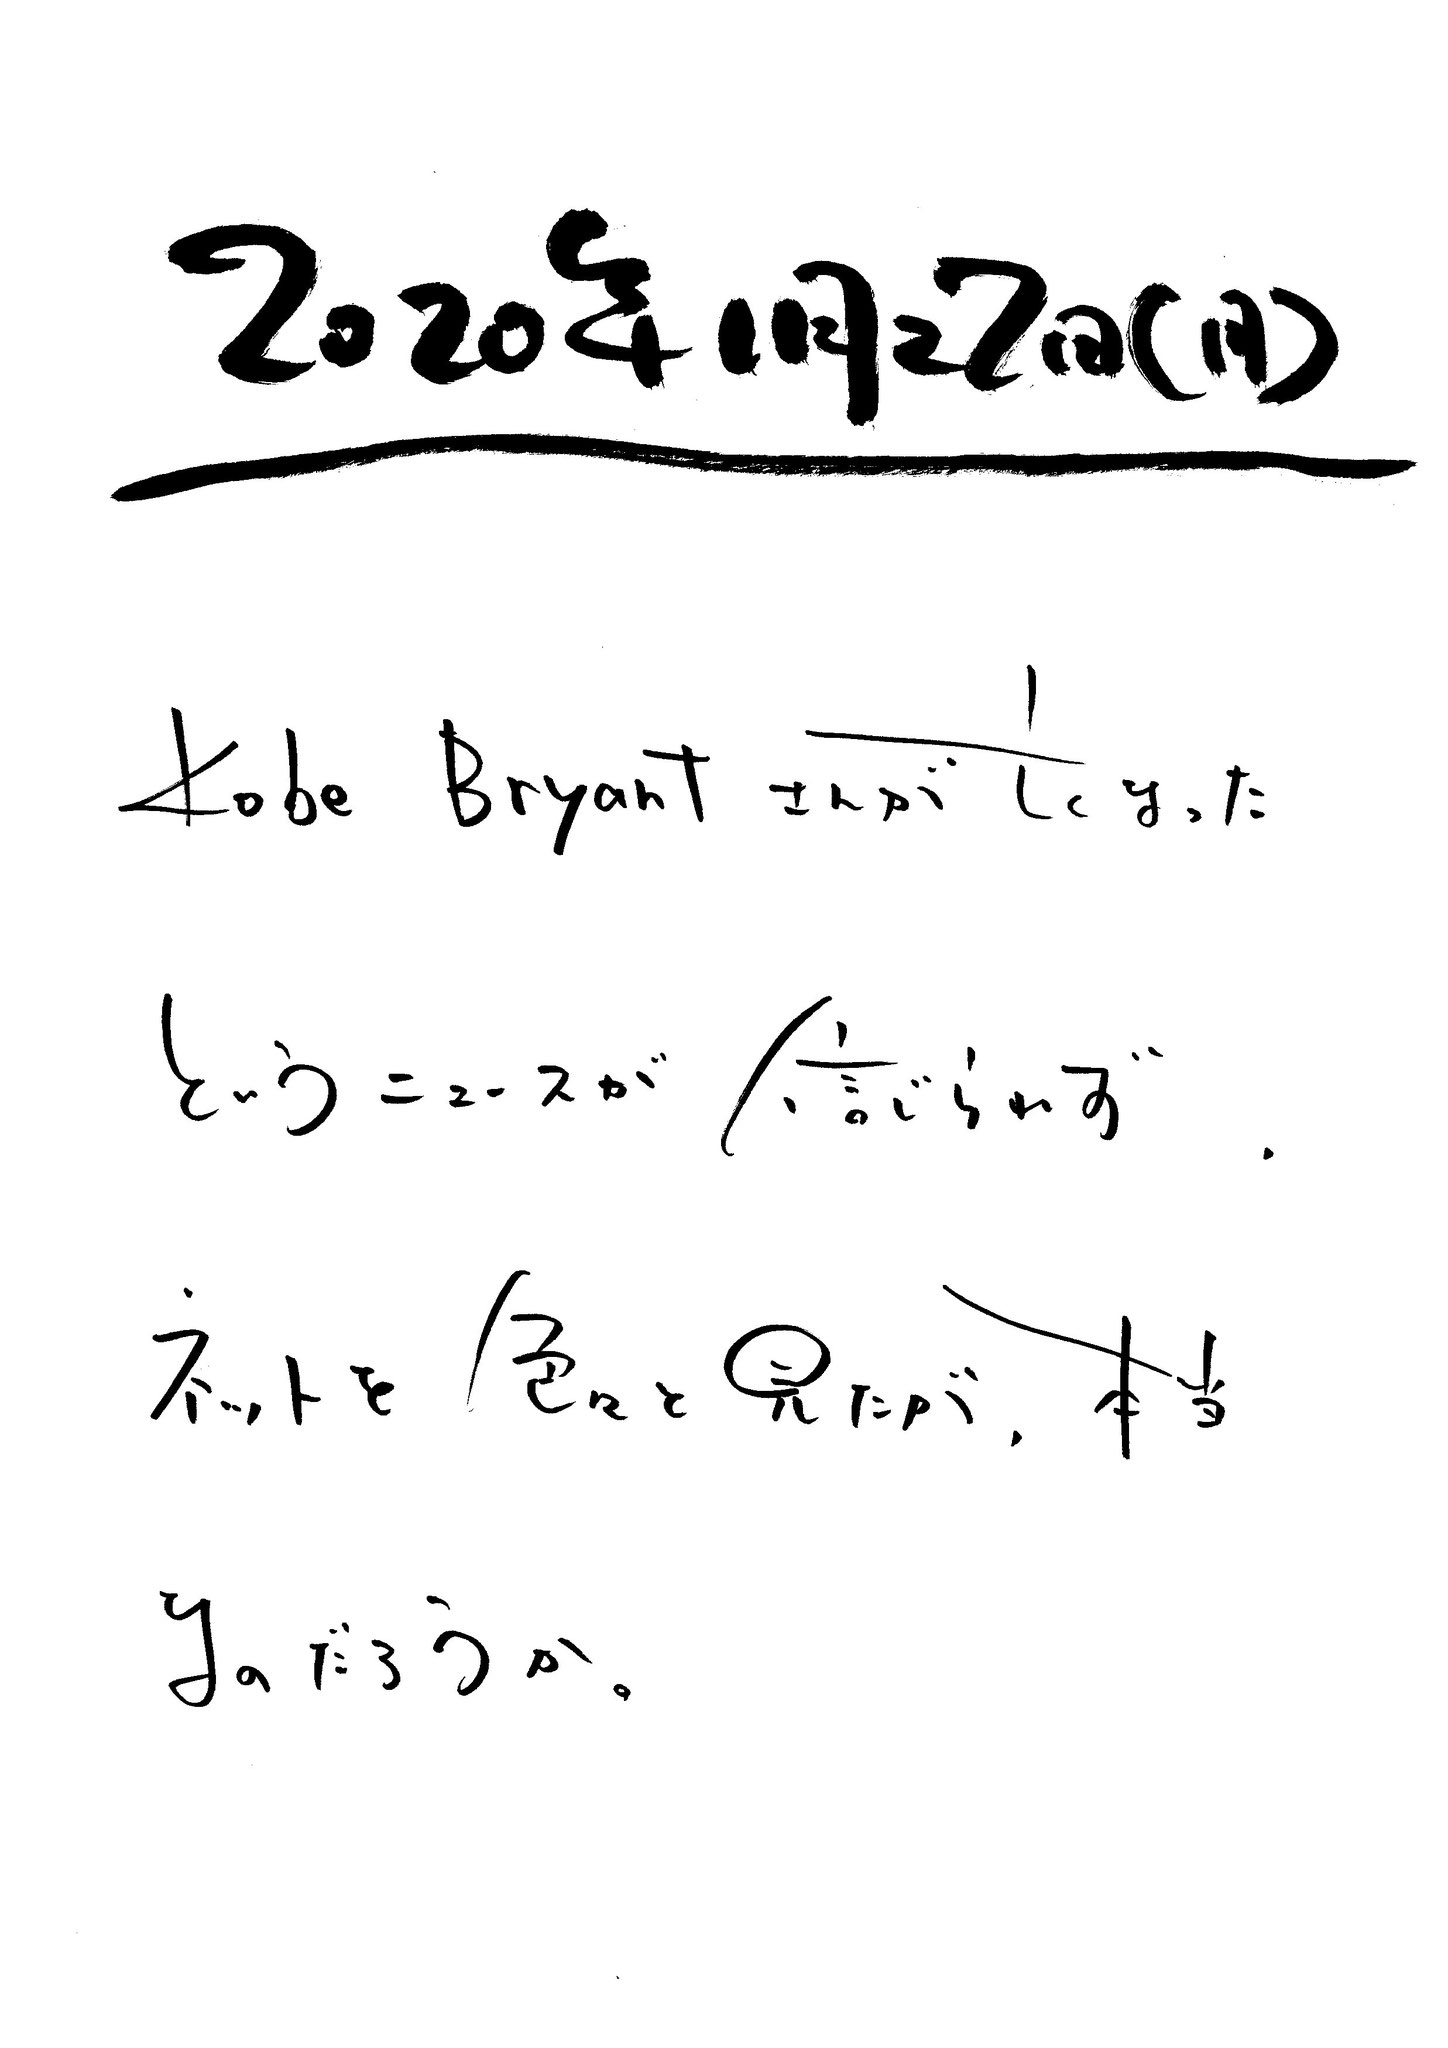 2020年1月27日(月)
Kobe Bryantさんが亡くなった
というニュースが信じられず、
ネットを色々と見たが、本当
なのだろうか。